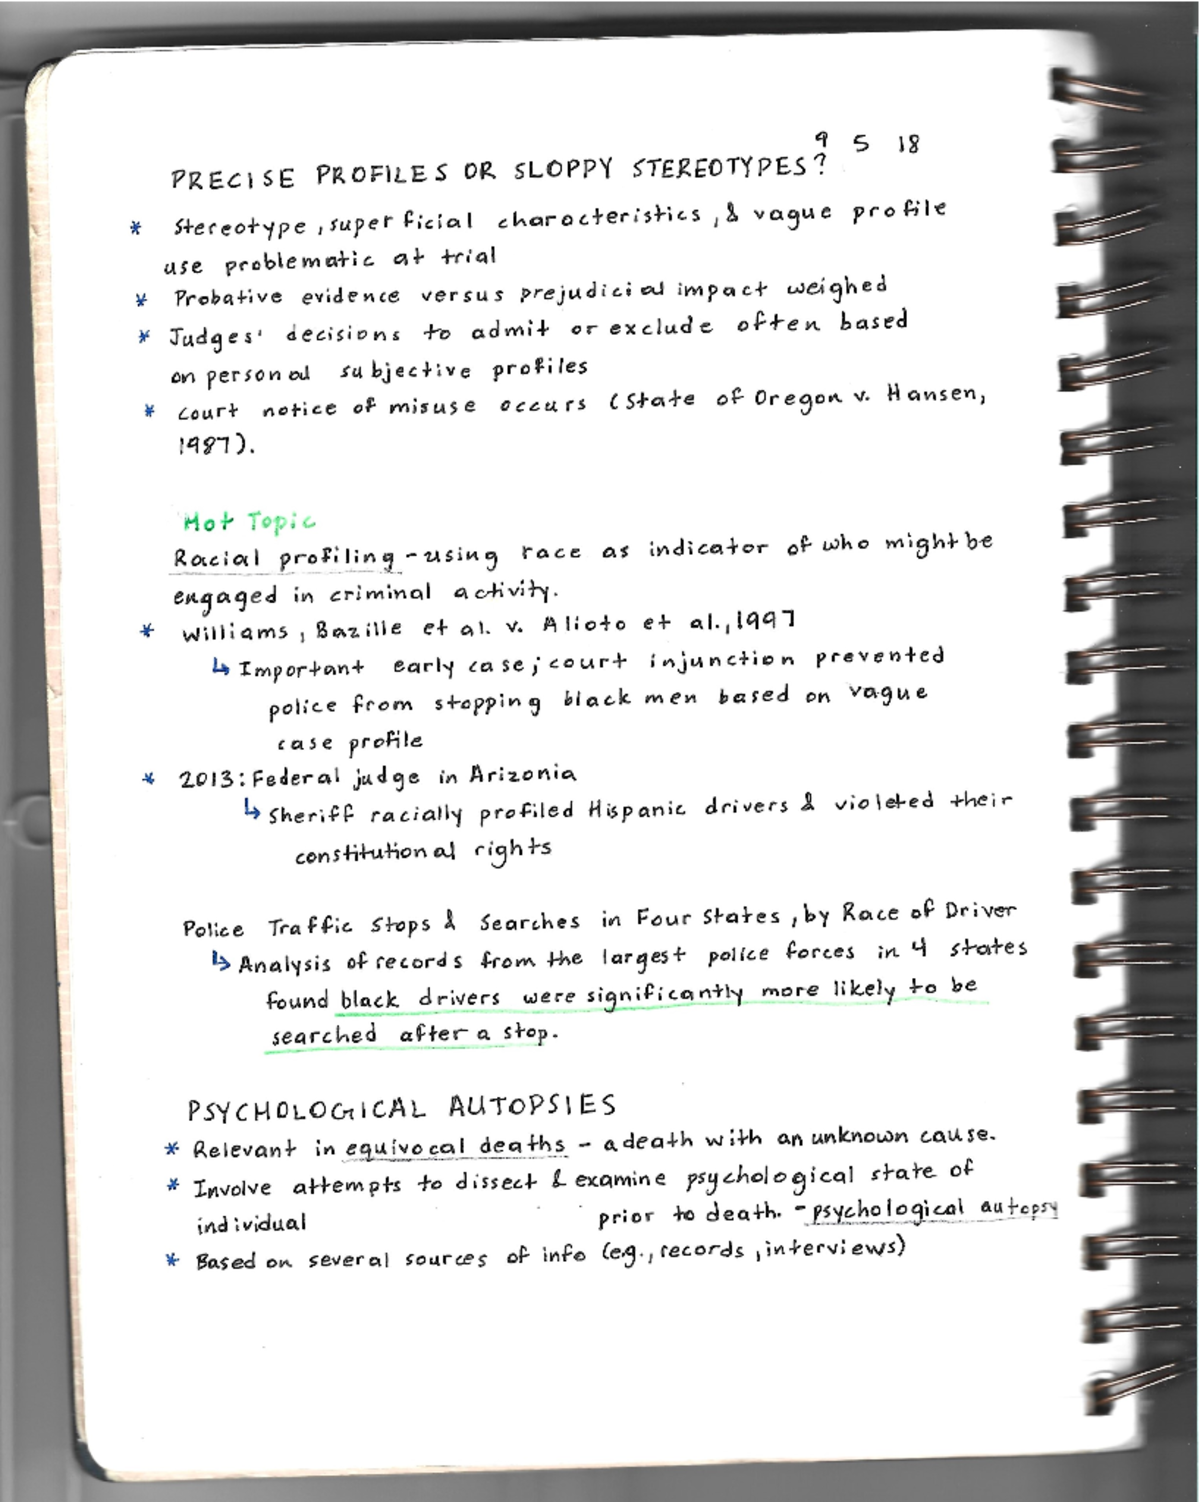 9 5 18
PRECISE PROFILES OR SLOPPY STEREOTYPES?
* Stereotype, superficial characteristics, & vague profile
use problematic at trial
* Probative evidence versus prejudicial impact weighed
* Judges' decisions to admit or exclude often based
on personal subjective profiles
* Court notice of misuse occurs (State of Oregon v. Hansen,
1987).
Hot Topic
Racial profiling - using race as indicator of who might be
engaged in criminal activity.
* Williams, Bazille et al. v. Alioto et al., 1997
↳ Important early case; court injunction prevented
police from stopping black men based on vague
case profile
* 2013: Federal judge in Arizonia
↳ Sheriff racially profiled Hispanic drivers & violated their
constitutional rights
Police Traffic Stops & Searches in Four States, by Race of Driver
↳ Analysis of records from the largest police forces in 4 states
found black drivers were significantly more likely to be
searched after a stop.
PSYCHOLOGICAL AUTOPSIES
* Relevant in equivocal deaths - a death with an unknown cause.
* Involve attempts to dissect & examine psychological state of
individual prior to death. - psychological autopsy
* Based on several sources of info (e.g., records, interviews)